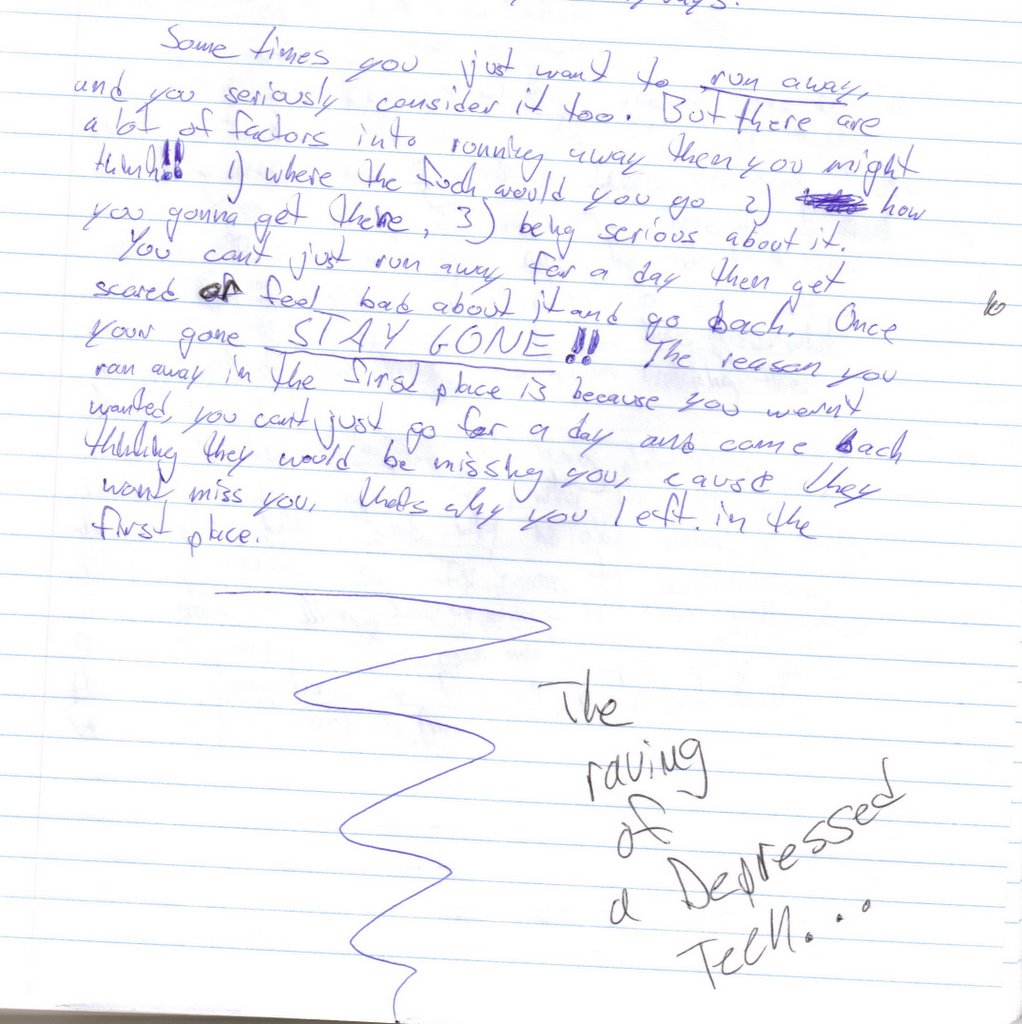 Some times you just want to run away,
and you seriously consider it too. But there are
a lot of factors into running away then you might
think!! 1) where the fuck would you go 2) how
you gonna get there, 3) being serious about it.
You cant just run away for a day then get
scared or feel bad about it and go back. Once
your gone STAY GONE!! The reason you
ran away in the first place is because you wernt
wanted, you cant just go for a day and come back
thinking they would be missing you, cause they
wont miss you, thats why you left in the
first place.
The
raving
of
a Depressed
Teen...